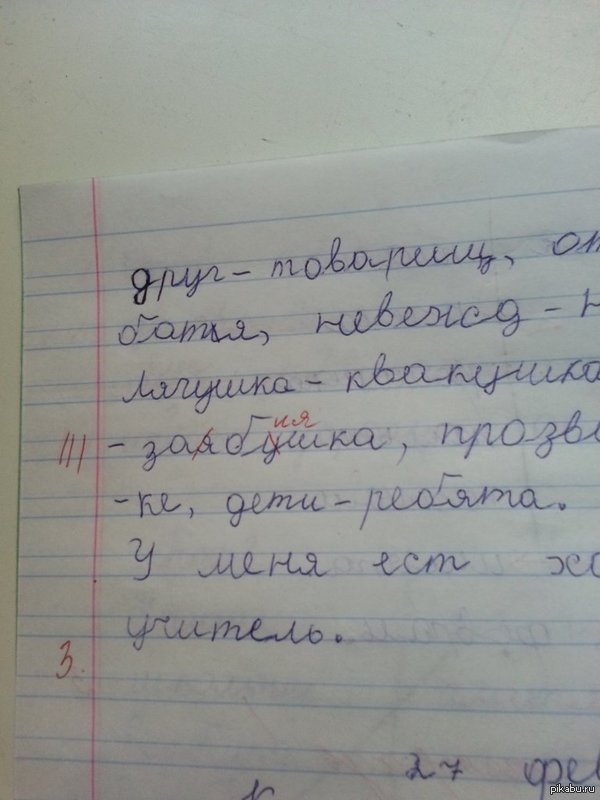 друг - товарищ, от
батя, невежд - н
Лягушка - квакушка
ия
III - заябушка, прозв
-ке, дети - ребята.
У меня ест хо
учитель.
3.
27 фев
К
pikabu.ru